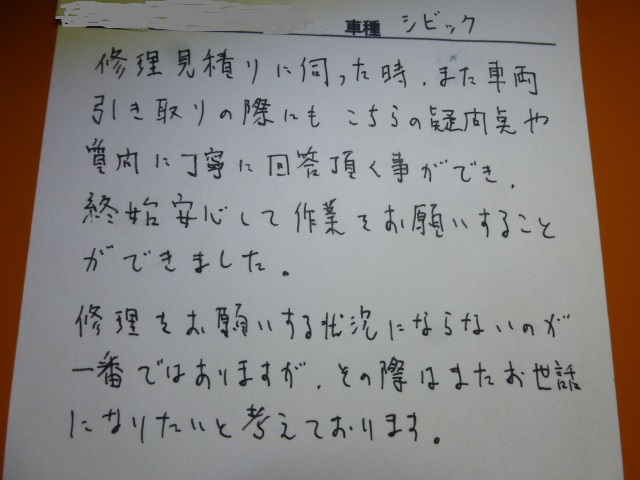 車種 シビック
修理見積りに伺った時、また車両
引き取りの際にも こちらの疑問点や
質問に丁寧に回答頂く事ができ、
終始安心して作業をお願いすること
ができました。
修理をお願いする状況にならないのが
一番ではありますが、その際はまたお世話
になりたいと考えております。